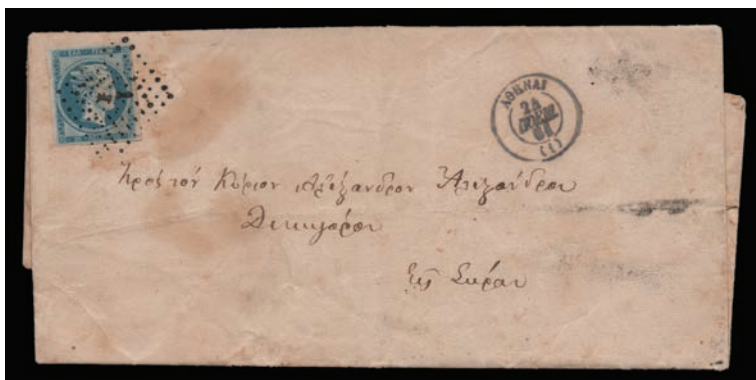 ΑΘΗΝΑΙ
24
61
(1)
1
Πρὸς τὸν Κύριον Ἀλέξανδρον Ἀλεξάνδρου
Δικηγόρον
Εἰς Σύραν